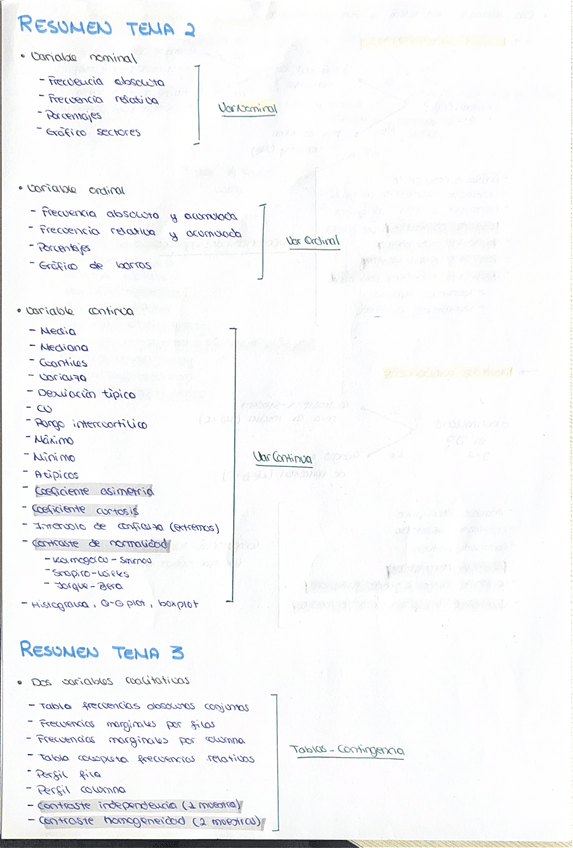 RESUMEN TEMA 2
• Variable nominal
- Frecuencia absoluta
- Frecuencia relativa
- Porcentajes
- Gráfico sectores
VarNominal
• Variable ordinal
- Frecuencia absoluta y acumulada
- Frecuencia relativa y acumulada
- Porcentajes
- Gráfico de barras
Var Ordinal
• Variable continua
- Media
- Mediana
- Cuantiles
- Varianza
- Desviación típica
- CV
- Rango intercuartílico
- Máximo
- Mínimo
- Atípicos
- Coeficiente asimetría
- Coeficiente curtosis
- Intervalo de confianza (extremos)
- Contraste de normalidad
- Kolmogorov-Smirnov
- Shapiro-Wilks
- Jarque-Bera
- Histograma, Q-Q plot, boxplot
VarContinua
RESUMEN TEMA 3
• Dos variables cualitativas
- Tabla frecuencias absolutas conjuntas
- Frecuencias marginales por filas
- Frecuencias marginales por columna
- Tabla conjunta frecuencias relativas
- Perfil fila
- Perfil columna
- Contraste independencia (1 muestra)
- Contraste homogeneidad (2 muestras)
Tablas-Contingencia